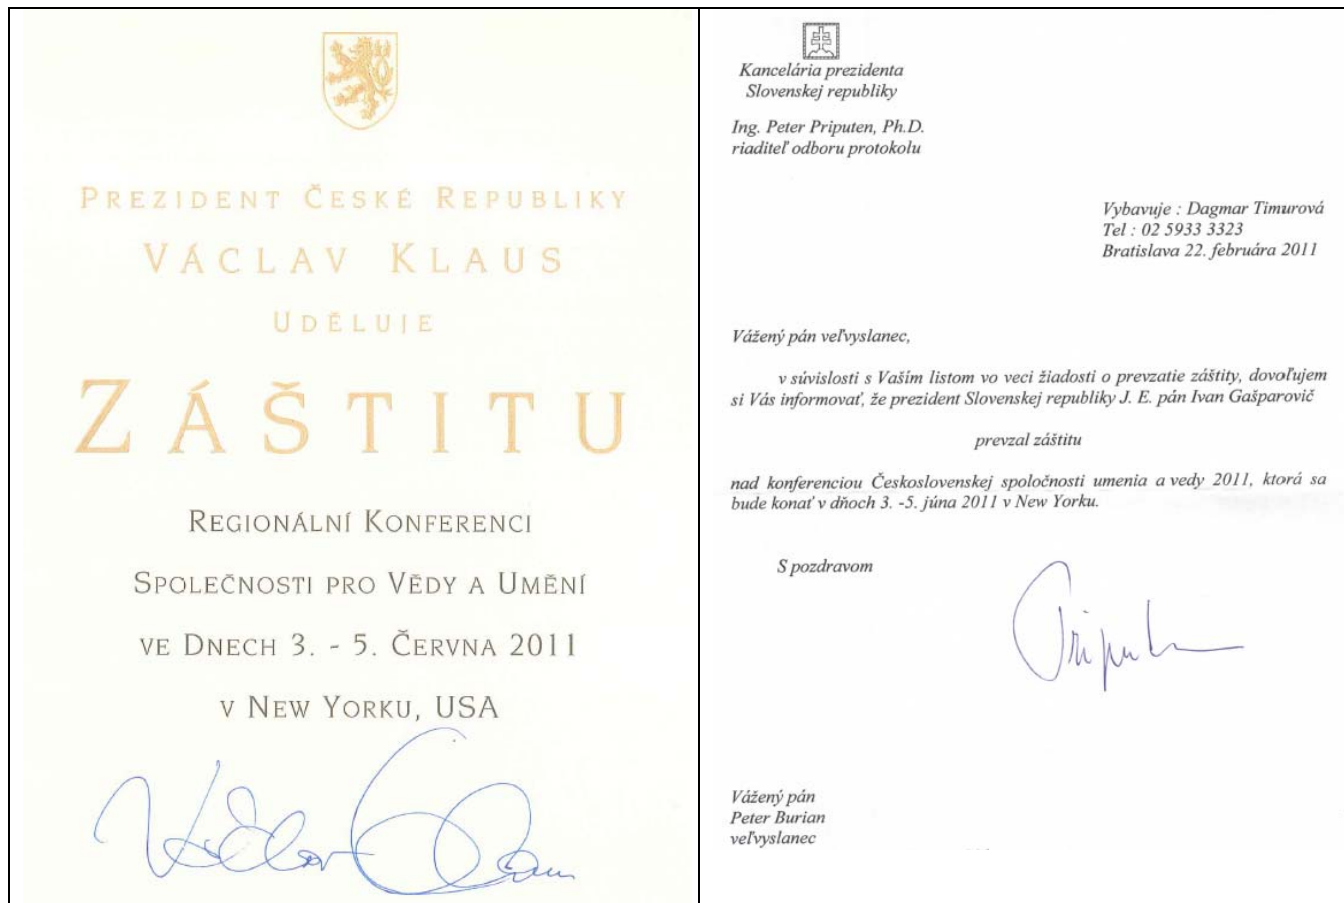 PREZIDENT ČESKÉ REPUBLIKY
VÁCLAV KLAUS
UDĚLUJE
ZÁŠTITU
REGIONÁLNÍ KONFERENCI
SPOLEČNOSTI PRO VĚDY A UMĚNÍ
VE DNECH 3. - 5. ČERVNA 2011
V NEW YORKU, USA
Kancelária prezidenta
Slovenskej republiky
Ing. Peter Priputen, Ph.D.
riaditeľ odboru protokolu
Vybavuje : Dagmar Timurová
Tel : 02 5933 3323
Bratislava 22. februára 2011
Vážený pán veľvyslanec,
v súvislosti s Vaším listom vo veci žiadosti o prevzatie záštity, dovoľujem
si Vás informovať, že prezident Slovenskej republiky J. E. pán Ivan Gašparovič
prevzal záštitu
nad konferenciou Československej spoločnosti umenia a vedy 2011, ktorá sa
bude konať v dňoch 3. -5. júna 2011 v New Yorku.
S pozdravom
Vážený pán
Peter Burian
veľvyslanec